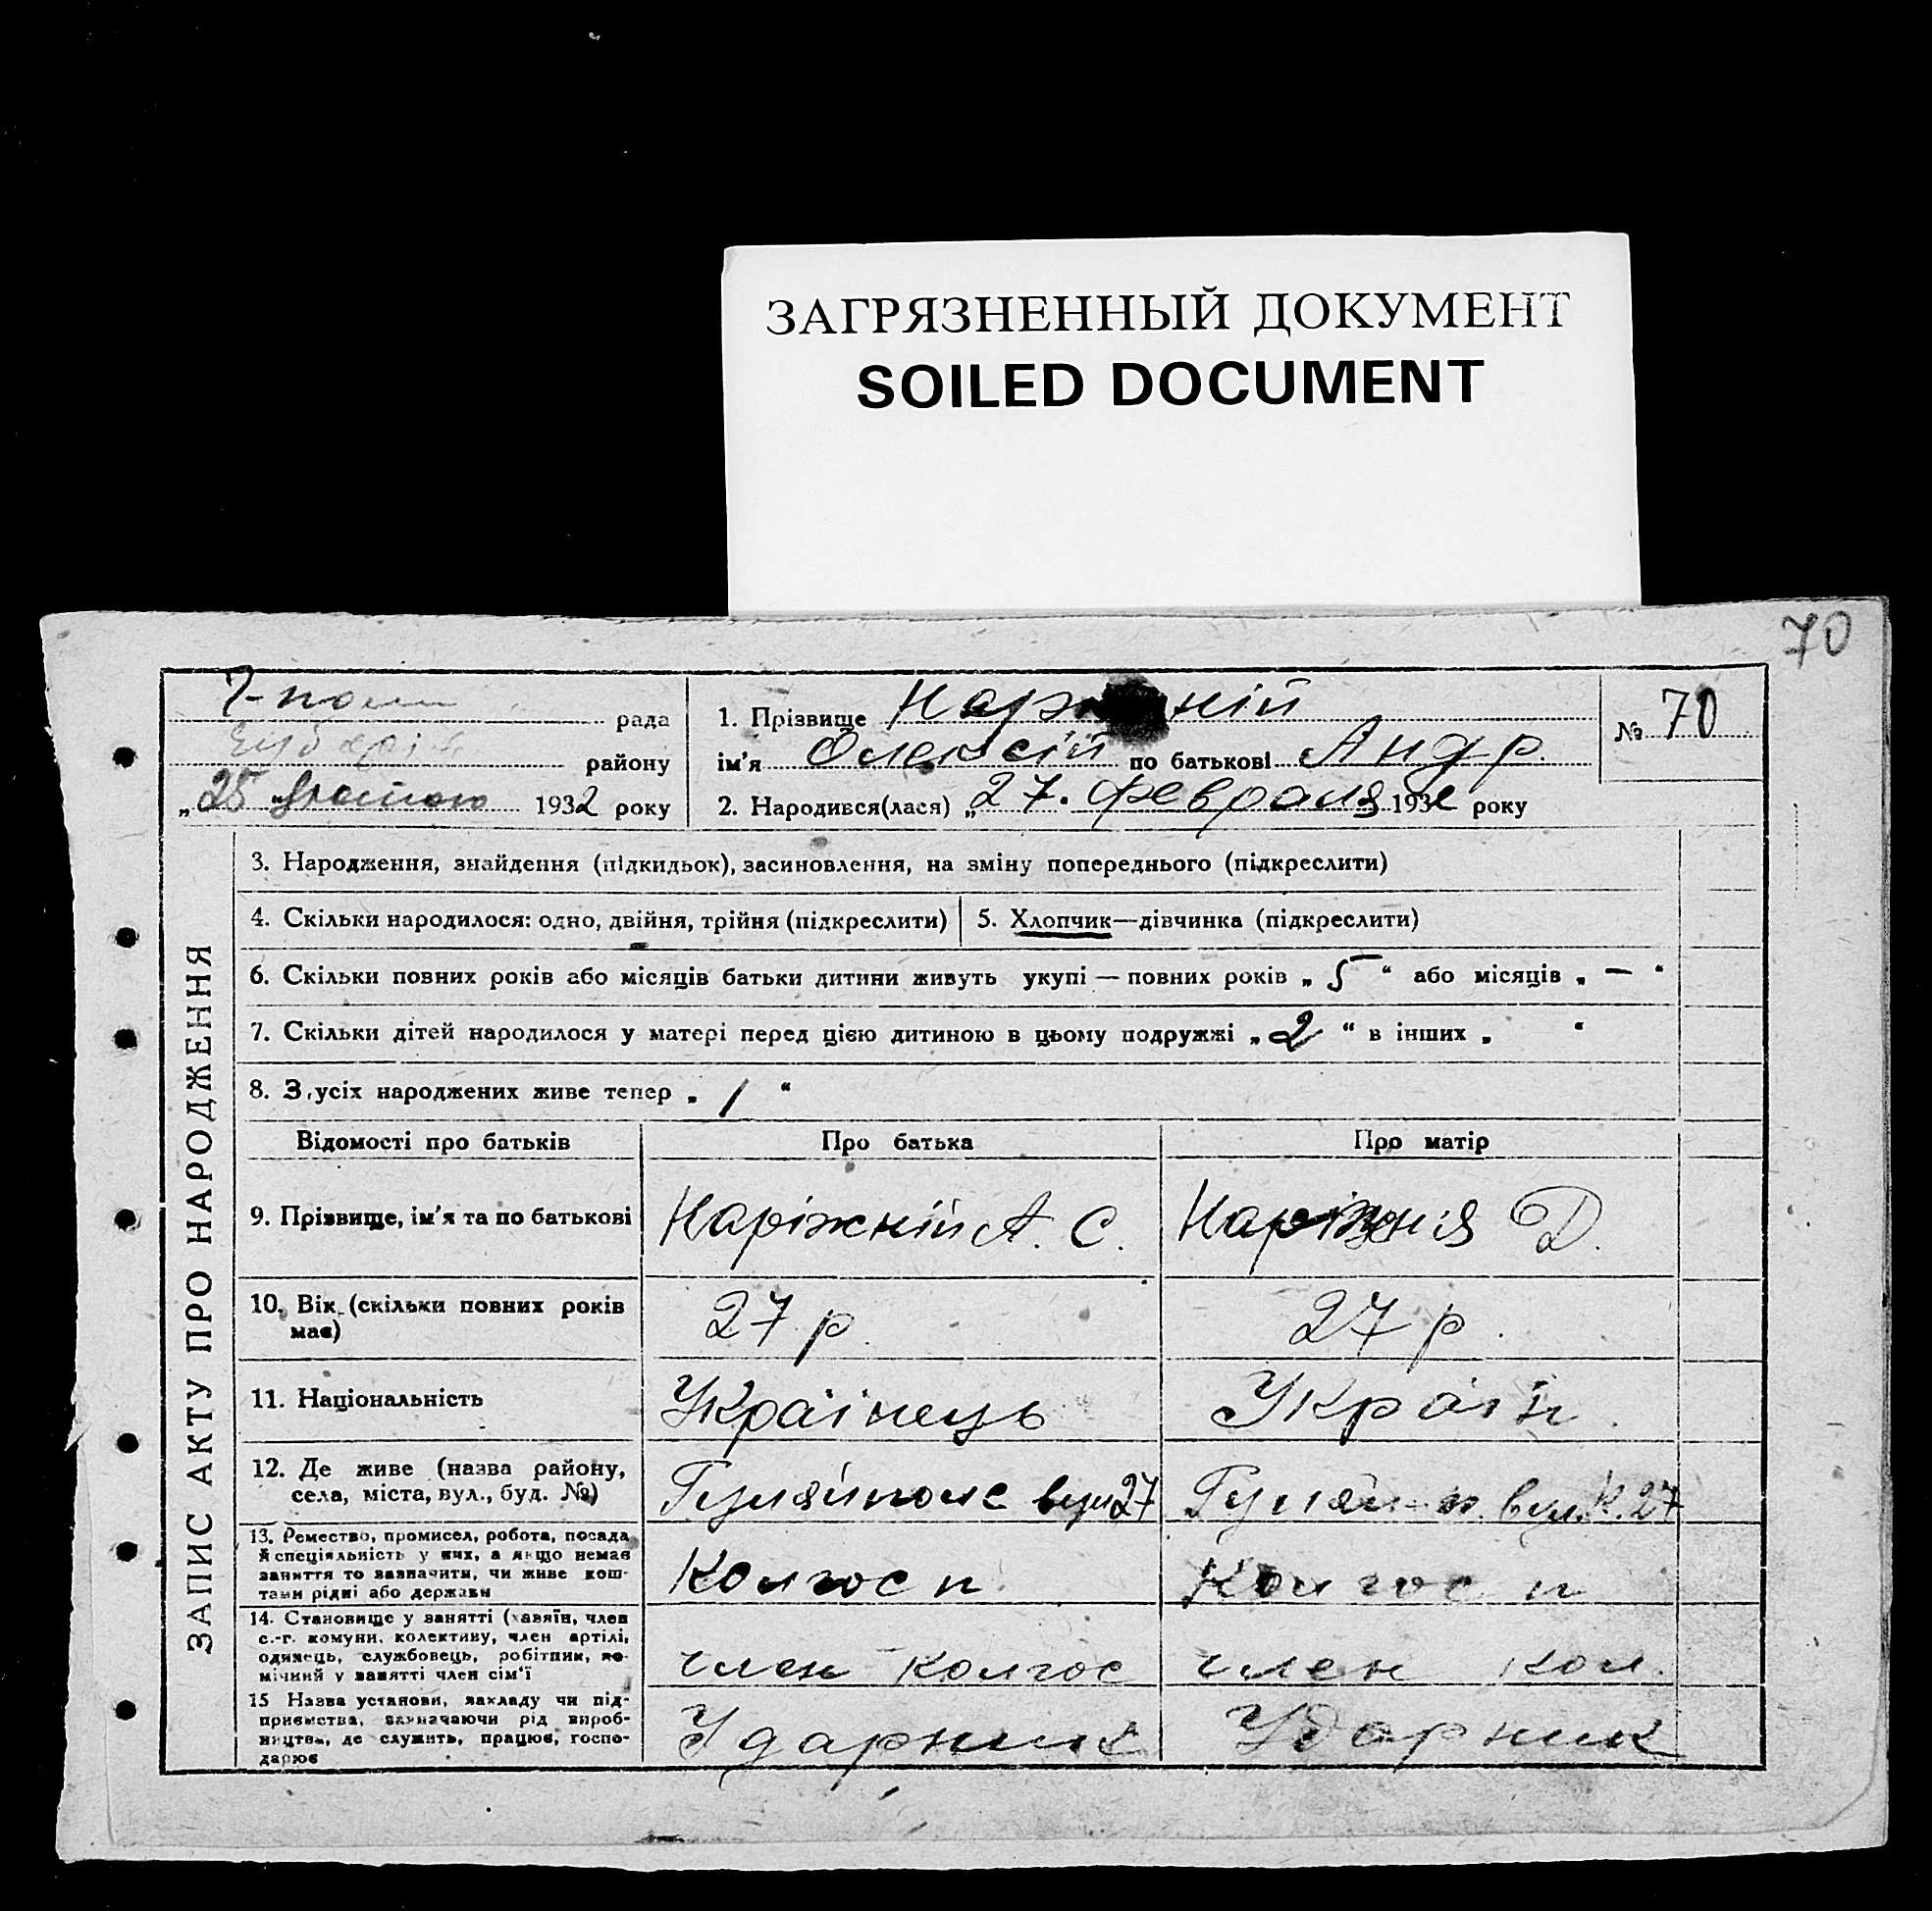 ЗАГРЯЗНЕННЫЙ ДОКУМЕНТ
SOILED DOCUMENT
70
рада
району
„25 1932 року
1. Прізвище
ім'я Олексій по батькові Андр.
2. Народився(лася) „27. февраля 1932 року
№ 70
ЗАПИС АКТУ ПРО НАРОДЖЕННЯ
3. Народження, знайдення (підкидьок), засиновлення, на зміну попереднього (підкреслити)
4. Скільки народилося: одно, двійня, трійня (підкреслити)
5. Хлопчик—дівчинка (підкреслити)
6. Скільки повних років або місяців батьки дитини живуть укупі — повних років „5“ або місяців „—“
7. Скільки дітей народилося у матері перед цією дитиною в цьому подружжі „2“ в інших „ “
8. З усіх народжених живе тепер „1“
Відомості про батьків Про батька Про матір
9. Прізвище, ім'я та по батькові Наріжній А. С. Наріжнія Д.
10. Вік (скільки повних років
має) 27 р. 27 р.
11. Національність Українець Україн.
12. Де живе (назва району,
села, міста, вул., буд. №) Гуляйполе вул 27 Гуляй-п. вул. К. 27
13. Ремество, промисел, робота, посада
й спеціяльність у них, а якщо немає
заняття то зазначити, чи живе кош-
тами рідні або держави Колгосп Колгосп
14. Становище у занятті (хазяїн, член
с.-г. комуни, колективу, член артілі,
одинець, службовець, робітник, по-
мічний у занятті член сім'ї член колгос член кол.
15 Назва установи, закладу чи під-
приємства, зазначаючи рід вироб-
ництва, де служить, працює, госпо-
дарює Ударник Ударник